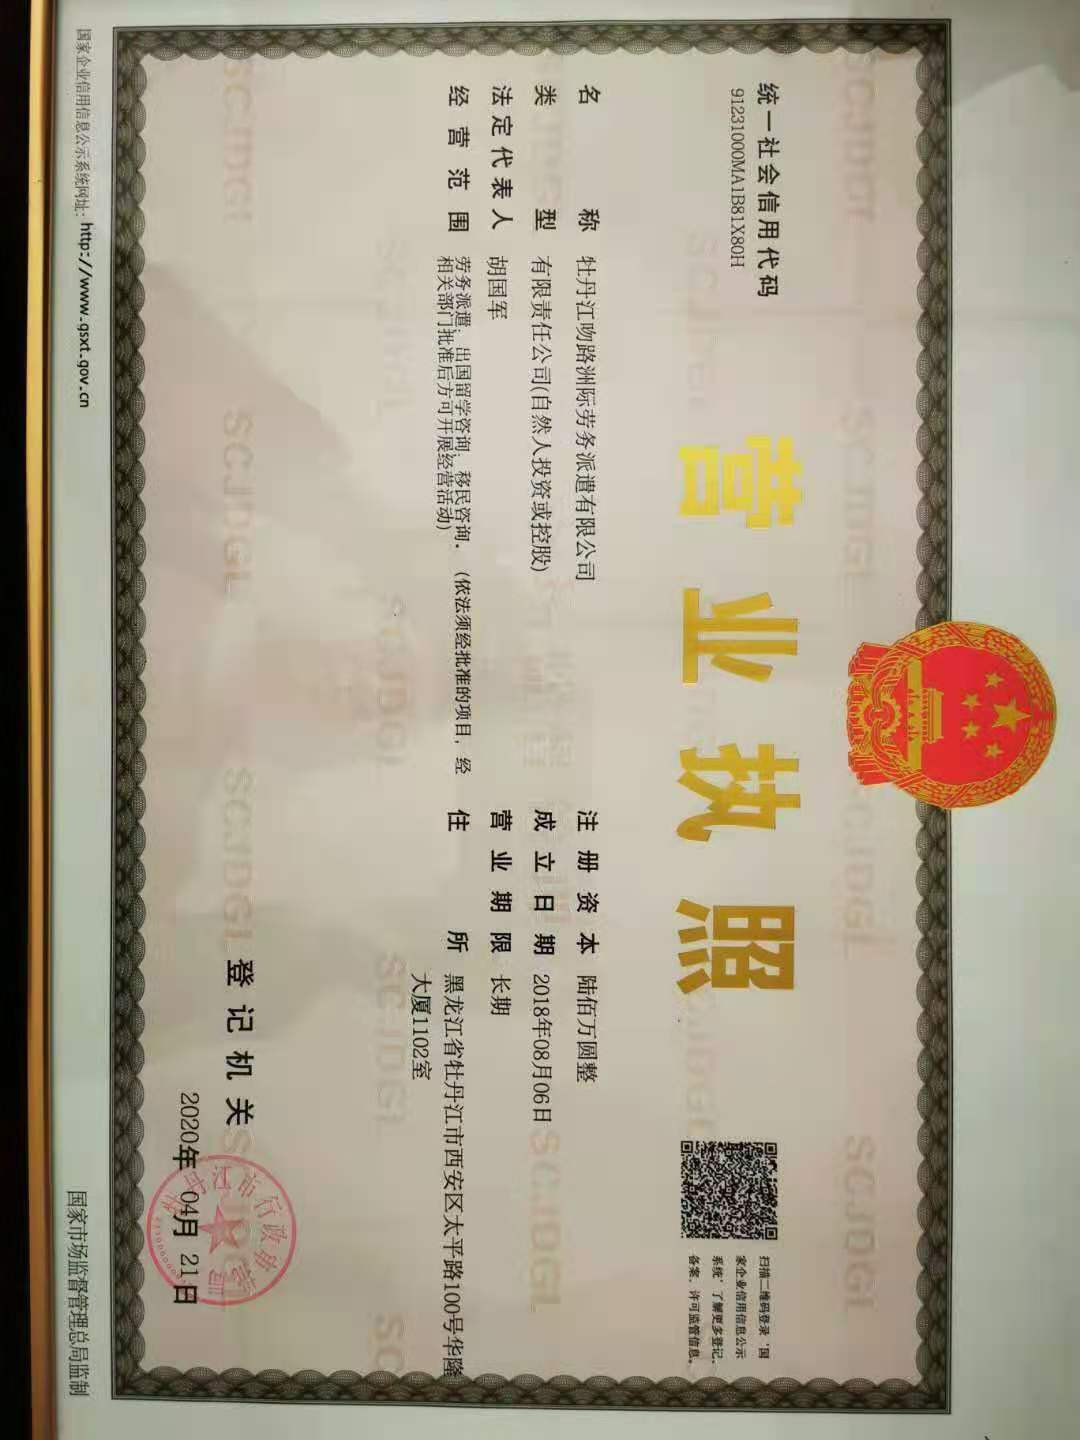 统一社会信用代码
91231000MA1B81X80H
营业执照
扫描二维码登录'国
家企业信用信息公示
系统'了解更多登记、
备案、许可监管信息。
名称 牡丹江吻路洲际劳务派遣有限公司
类型 有限责任公司(自然人投资或控股)
法定代表人 胡国军
经营范围 劳务派遣；出国留学咨询；移民咨询。(依法须经批准的项目，经
相关部门批准后方可开展经营活动)
注册资本 陆佰万圆整
成立日期 2018年08月06日
营业期限 长期
住所 黑龙江省牡丹江市西安区太平路100号华隆
大厦1102室
登记机关
2020年 04月 21日
国家企业信用信息公示系统网址：http://www.gsxt.gov.cn
国家市场监督管理总局监制
SCJDGL